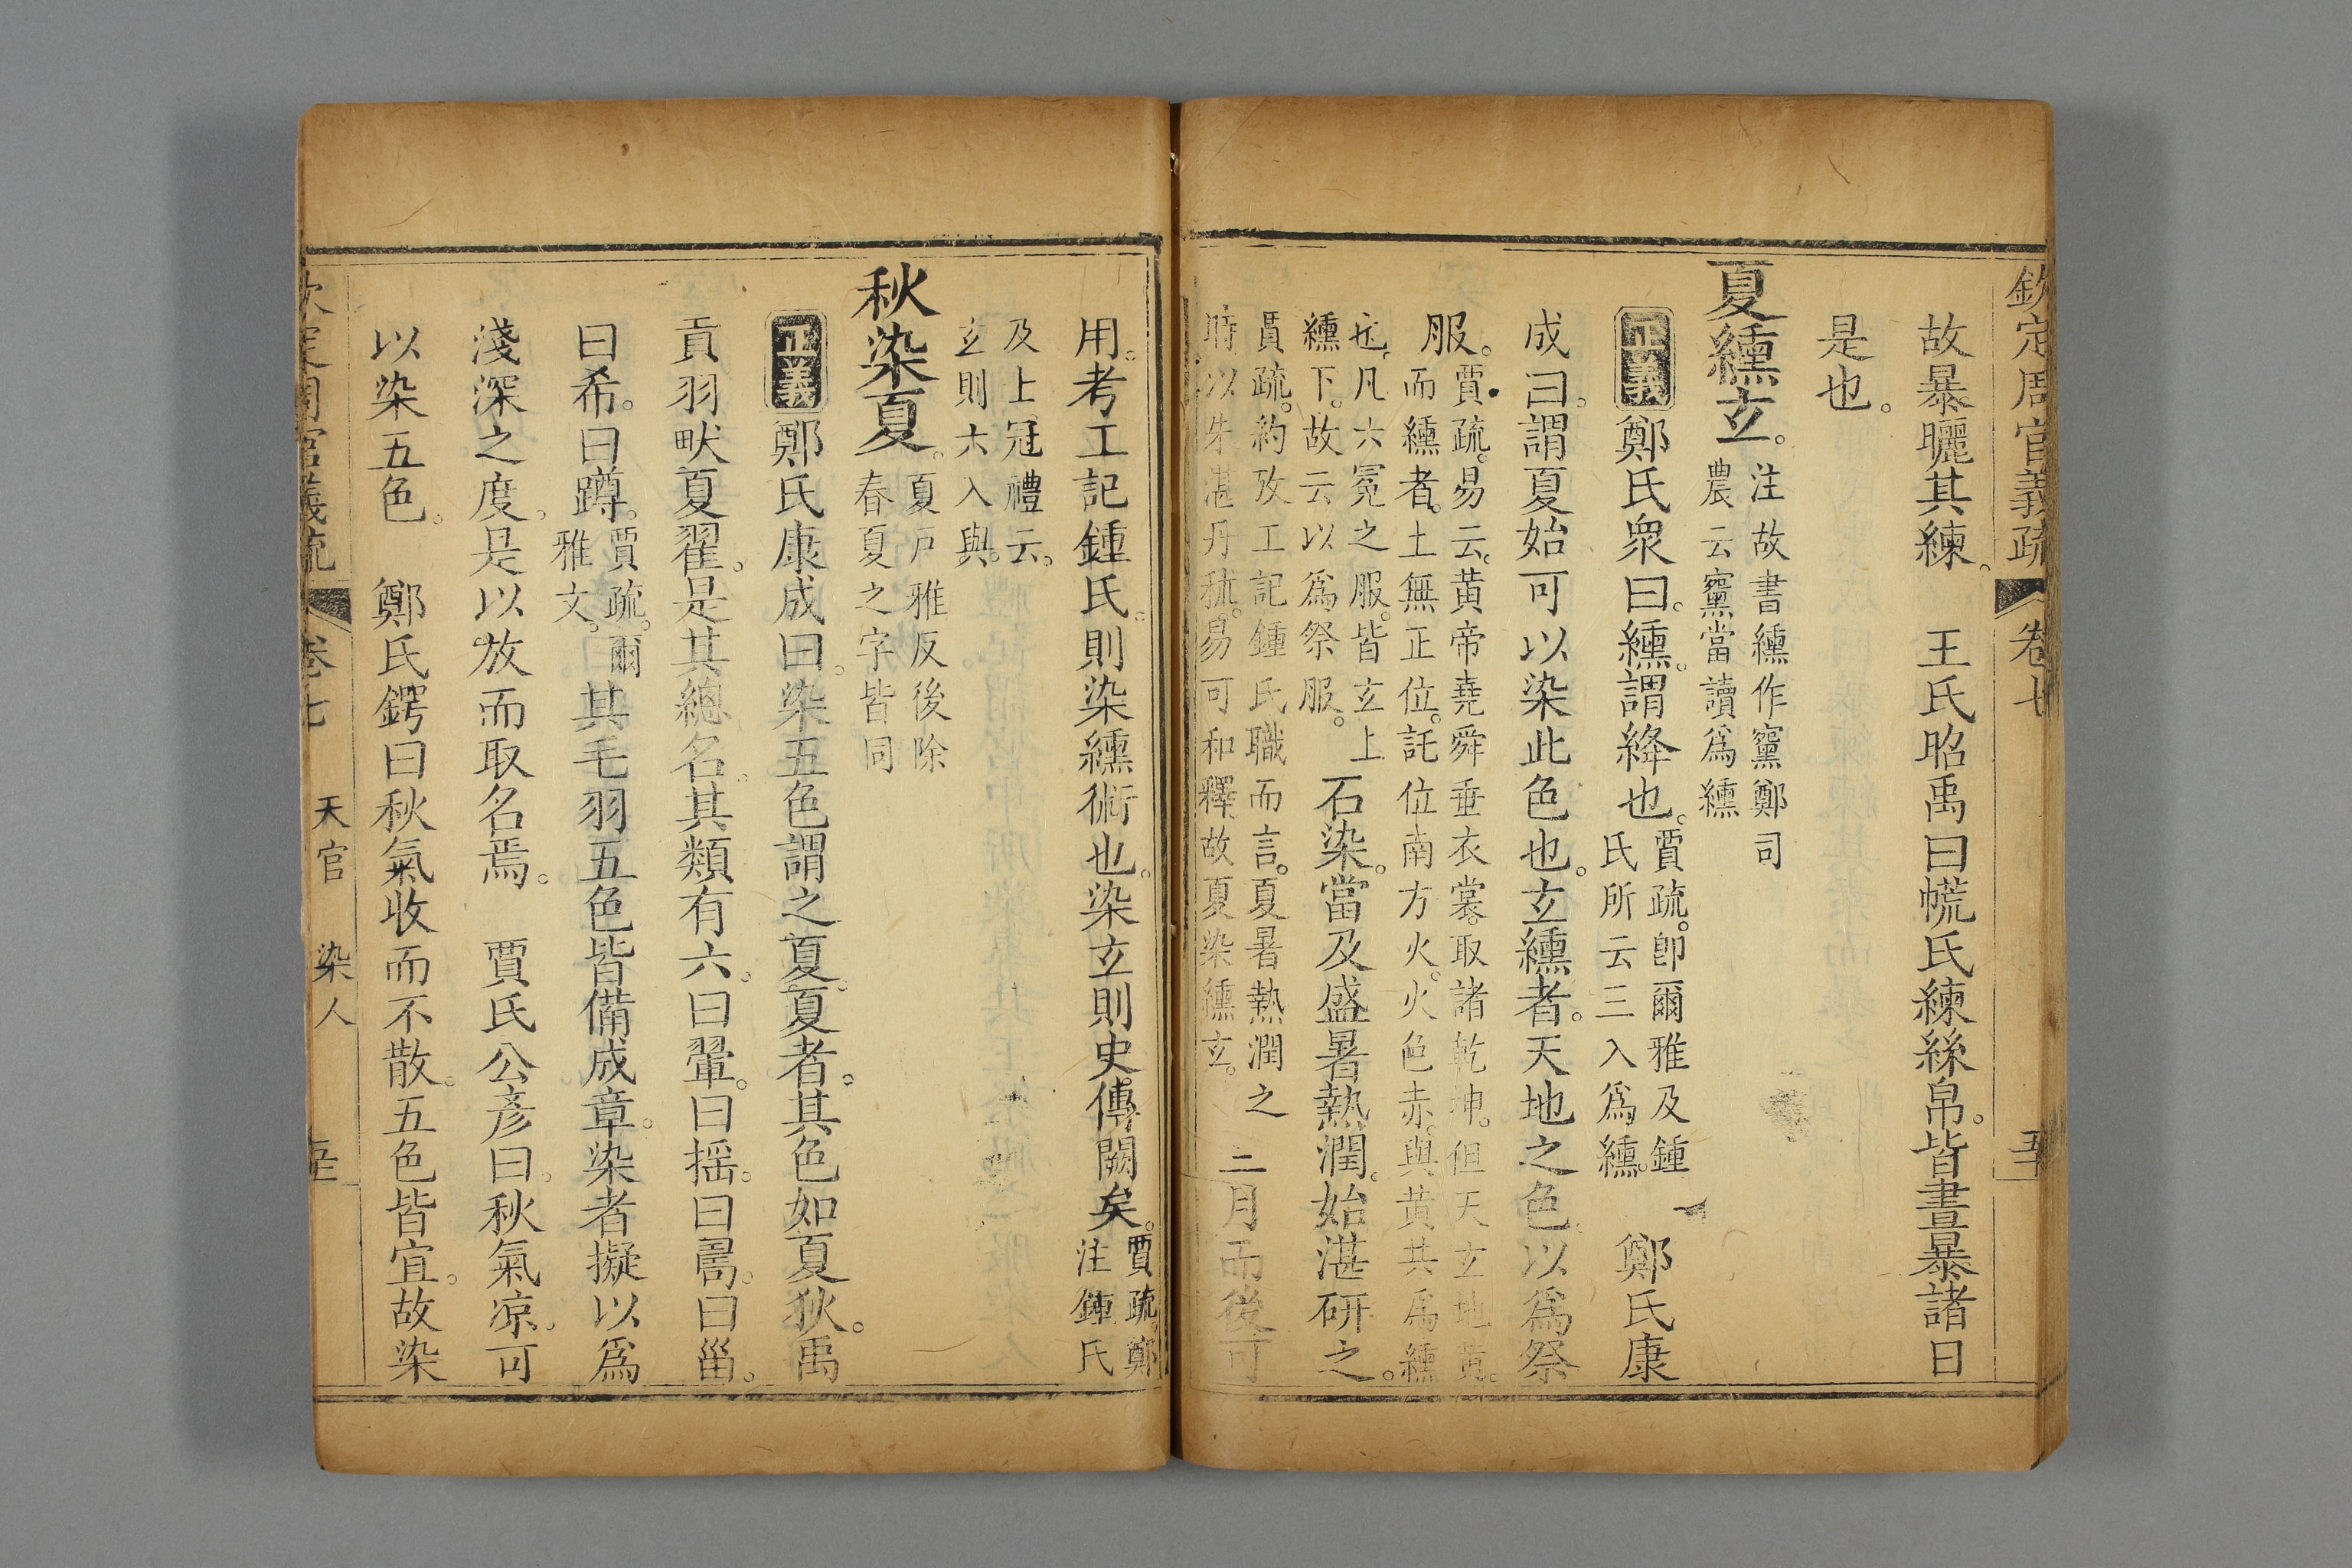 欽定周官義疏 卷七
故暴曬其練。 王氏昭禹曰㡛氏練絲帛。皆晝暴諸日
是也。
夏纁玄。注故書纁作䵫鄭司
農云䵫當讀爲纁
正義 鄭氏衆曰。纁。謂絳也。賈疏。卽爾雅及鍾
氏所云三入爲纁。 鄭氏康
成曰。謂夏始可以染此色也。玄纁者。天地之色。以爲祭
服。賈疏。易云。黃帝堯舜垂衣裳。取諸乾坤。但天玄地黃。
而纁者。土無正位。託位南方火。火色赤。與黃共爲纁
也。凡六冕之服。皆玄上
纁下。故云以爲祭服。石染。當及盛暑熱潤。始湛研之。
賈疏。約攷工記鍾氏職而言。夏暑熱潤之
時。以朱湛丹秫。易可和釋故夏染纁玄。三月而後可
用。考工記鍾氏。則染纁術也。染玄則史傳闕矣。賈疏。鄭
注鍾氏
及上冠禮云。
玄則六入與。
秋染夏。夏戸雅反後除
春夏之字皆同
正義 鄭氏康成曰。染五色謂之夏。夏者。其色如夏狄。禹
貢羽畎夏翟。是其總名。其類有六。曰翬。曰搖。曰𠷎。曰甾。
曰希。曰蹲。賈疏。爾
雅文。其毛羽五色皆備成章。染者擬以爲
淺深之度。是以放而取名焉。 賈氏公彥曰。秋氣凉。可
以染五色。 鄭氏鍔曰秋氣收而不散。五色皆宜。故染
欽定周官義疏 卷七 天官 染人